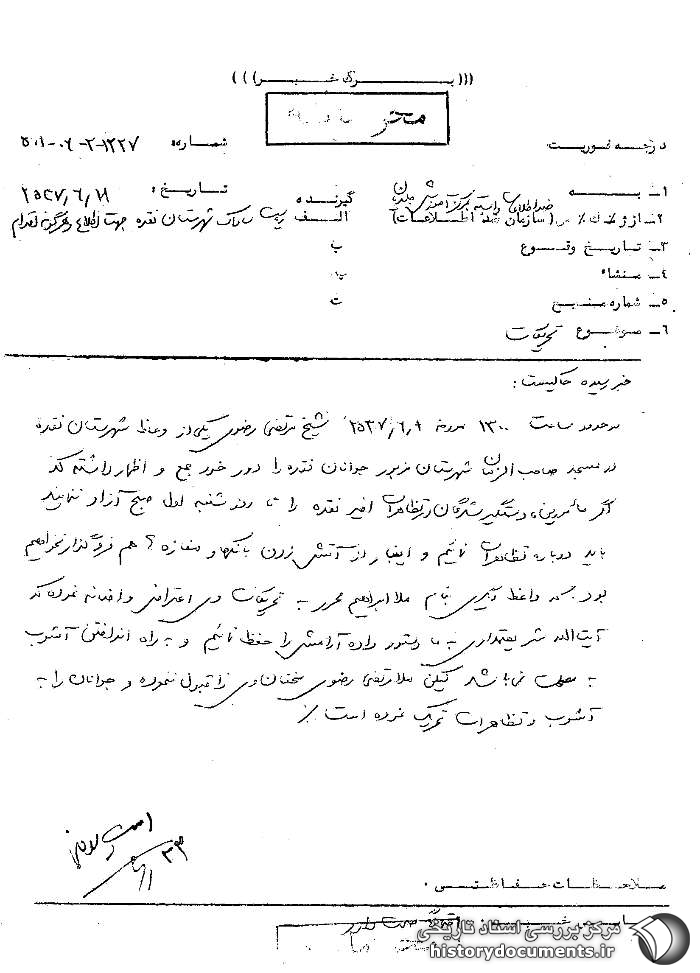 (((بــرگ خــبــر)))
محرمانه
درجـه فـوریـت
شماره: ۱۲۲۷-۲-۰۶-۵۰۱
۱ـ بـه
گیرنده
تاریخ: ۲۵۳۷/۶/۱۱
۲ـ از (سازمان ضد اطلاعات)
الف ریاست ساواک شهرستان نقده جهت اطلاع و هرگونه اقدام
۳ـ تاریخ وقوع
ب
۴ـ منشاء
پ
۵ـ شماره منبع
ت
۶ـ موضوع تحریکات
خبر رسیده حاکیست:
در حدود ساعت ۱۳۰۰ مورخه ۲۵۳۷/۶/۹ شیخ مرتضی رضوی یکی از وعاظ شهرستان نقده
در مسجد صاحب الزمان شهرستان مزبور جوانان نقده را دور خود جمع و اظهار داشته که
اگر مأمورین، دستگیر شدگان در تظاهرات اخیر نقده را تا روز شنبه اول صبح آزاد ننمایند
باید دوباره تظاهرات نمائیم و اینبار از آتش زدن بانکها و مغازه‌ها هم فروگذار نخواهیم
بود سپس واعظ دیگری بنام ملا ابراهیم محرر به تحریکات وی اعتراض و اضافه نموده که
آیت‌اله شریعتمداری به ما دستور داده آرامش را حفظ نمائیم و به راه انداختن آشوب
به صلاح نمی‌باشد لیکن ملا مرتضی رضوی سخنان وی را قبول ننموده و جوانان را به
آشوب و تظاهرات تحریک نموده است.
ملاحظات حفاظتی.
صحت دارد
مرکز بررسی اسناد تاریخی
historydocuments.ir